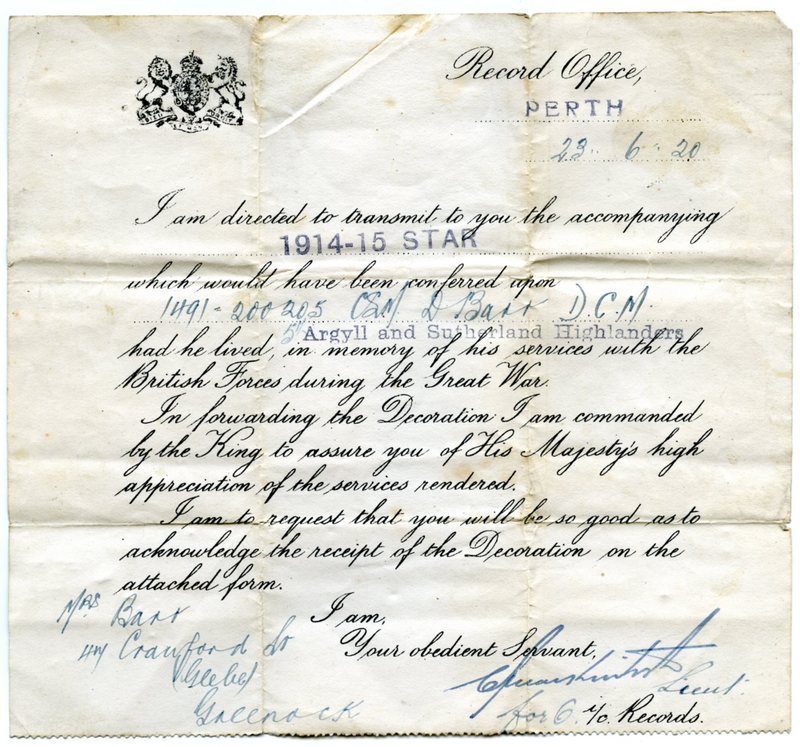 Record Office,
PERTH
23 6 20
I am directed to transmit to you the accompanying
1914-15 STAR
which would have been conferred upon
1491 - 200205 D Barr D.C.M.
5/ Argyll and Sutherland Highlanders
had he lived, in memory of his services with the
British Forces during the Great War.
In forwarding the Decoration I am commanded
by the King to assure you of His Majesty's high
appreciation of the services rendered.
I am to request that you will be so good as to
acknowledge the receipt of the Decoration on the
attached form.
I am,
Your obedient Servant,
Lieut.
for O. i/c Records.
Mrs Barr
Crauford St
(Glebe)
Greenock